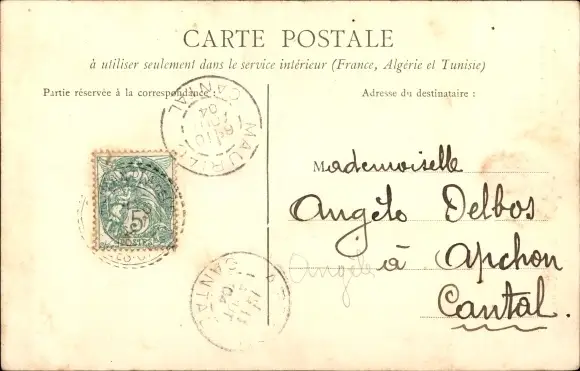 CARTE POSTALE
à utiliser seulement dans le service intérieur (France, Algérie et Tunisie)
Partie réservée à la correspondance :
Adresse du destinataire :
CANTAL
04
Mademoiselle
Angèlo Delbos
à Apchon
Angèle
Cantal.
5
04